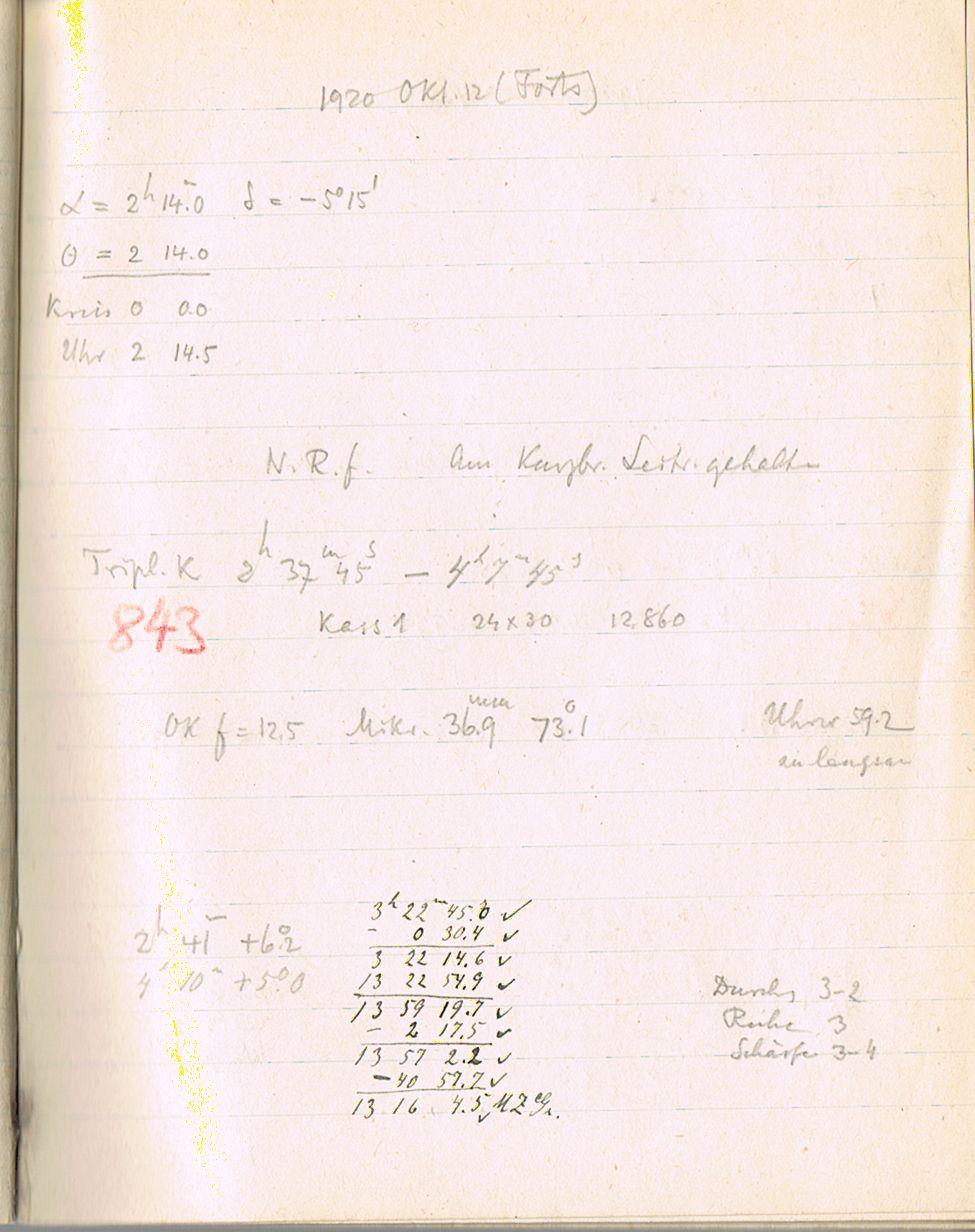 1920 Okt. 12 (Forts)
α = 2ʰ 14ᵐ.0 δ = −5° 15'
θ = 2 14.0
Kreis 0 0.0
Uhr 2 14.5
N. R. f. Am Kurzbr. Leitr. gehalten
Tripl. K 2ʰ 37ᵐ 45ˢ — 4ʰ 7ᵐ 45ˢ
843
Kass 1 24 × 30 12.860
OK f = 12.5 Mikr. 36.9ᵐᵐ 73°.1 Uhrw 59.2
zu langsam
3ʰ 22ᵐ 45.0 ✓
− 0 30.4 ✓
2ʰ 41ᵐ +6°.2
3 22 14.6 ✓
4ʰ 10ᵐ +5°.0
13 22 54.9 ✓
13 59 19.7 ✓
− 2 17.5 ✓
13 57 2.2 ✓
−40 57.7 ✓
13 16 4.5 ✓ MZGr.
Durchs 3–2
Ruhe 3
Schärfe 3–4